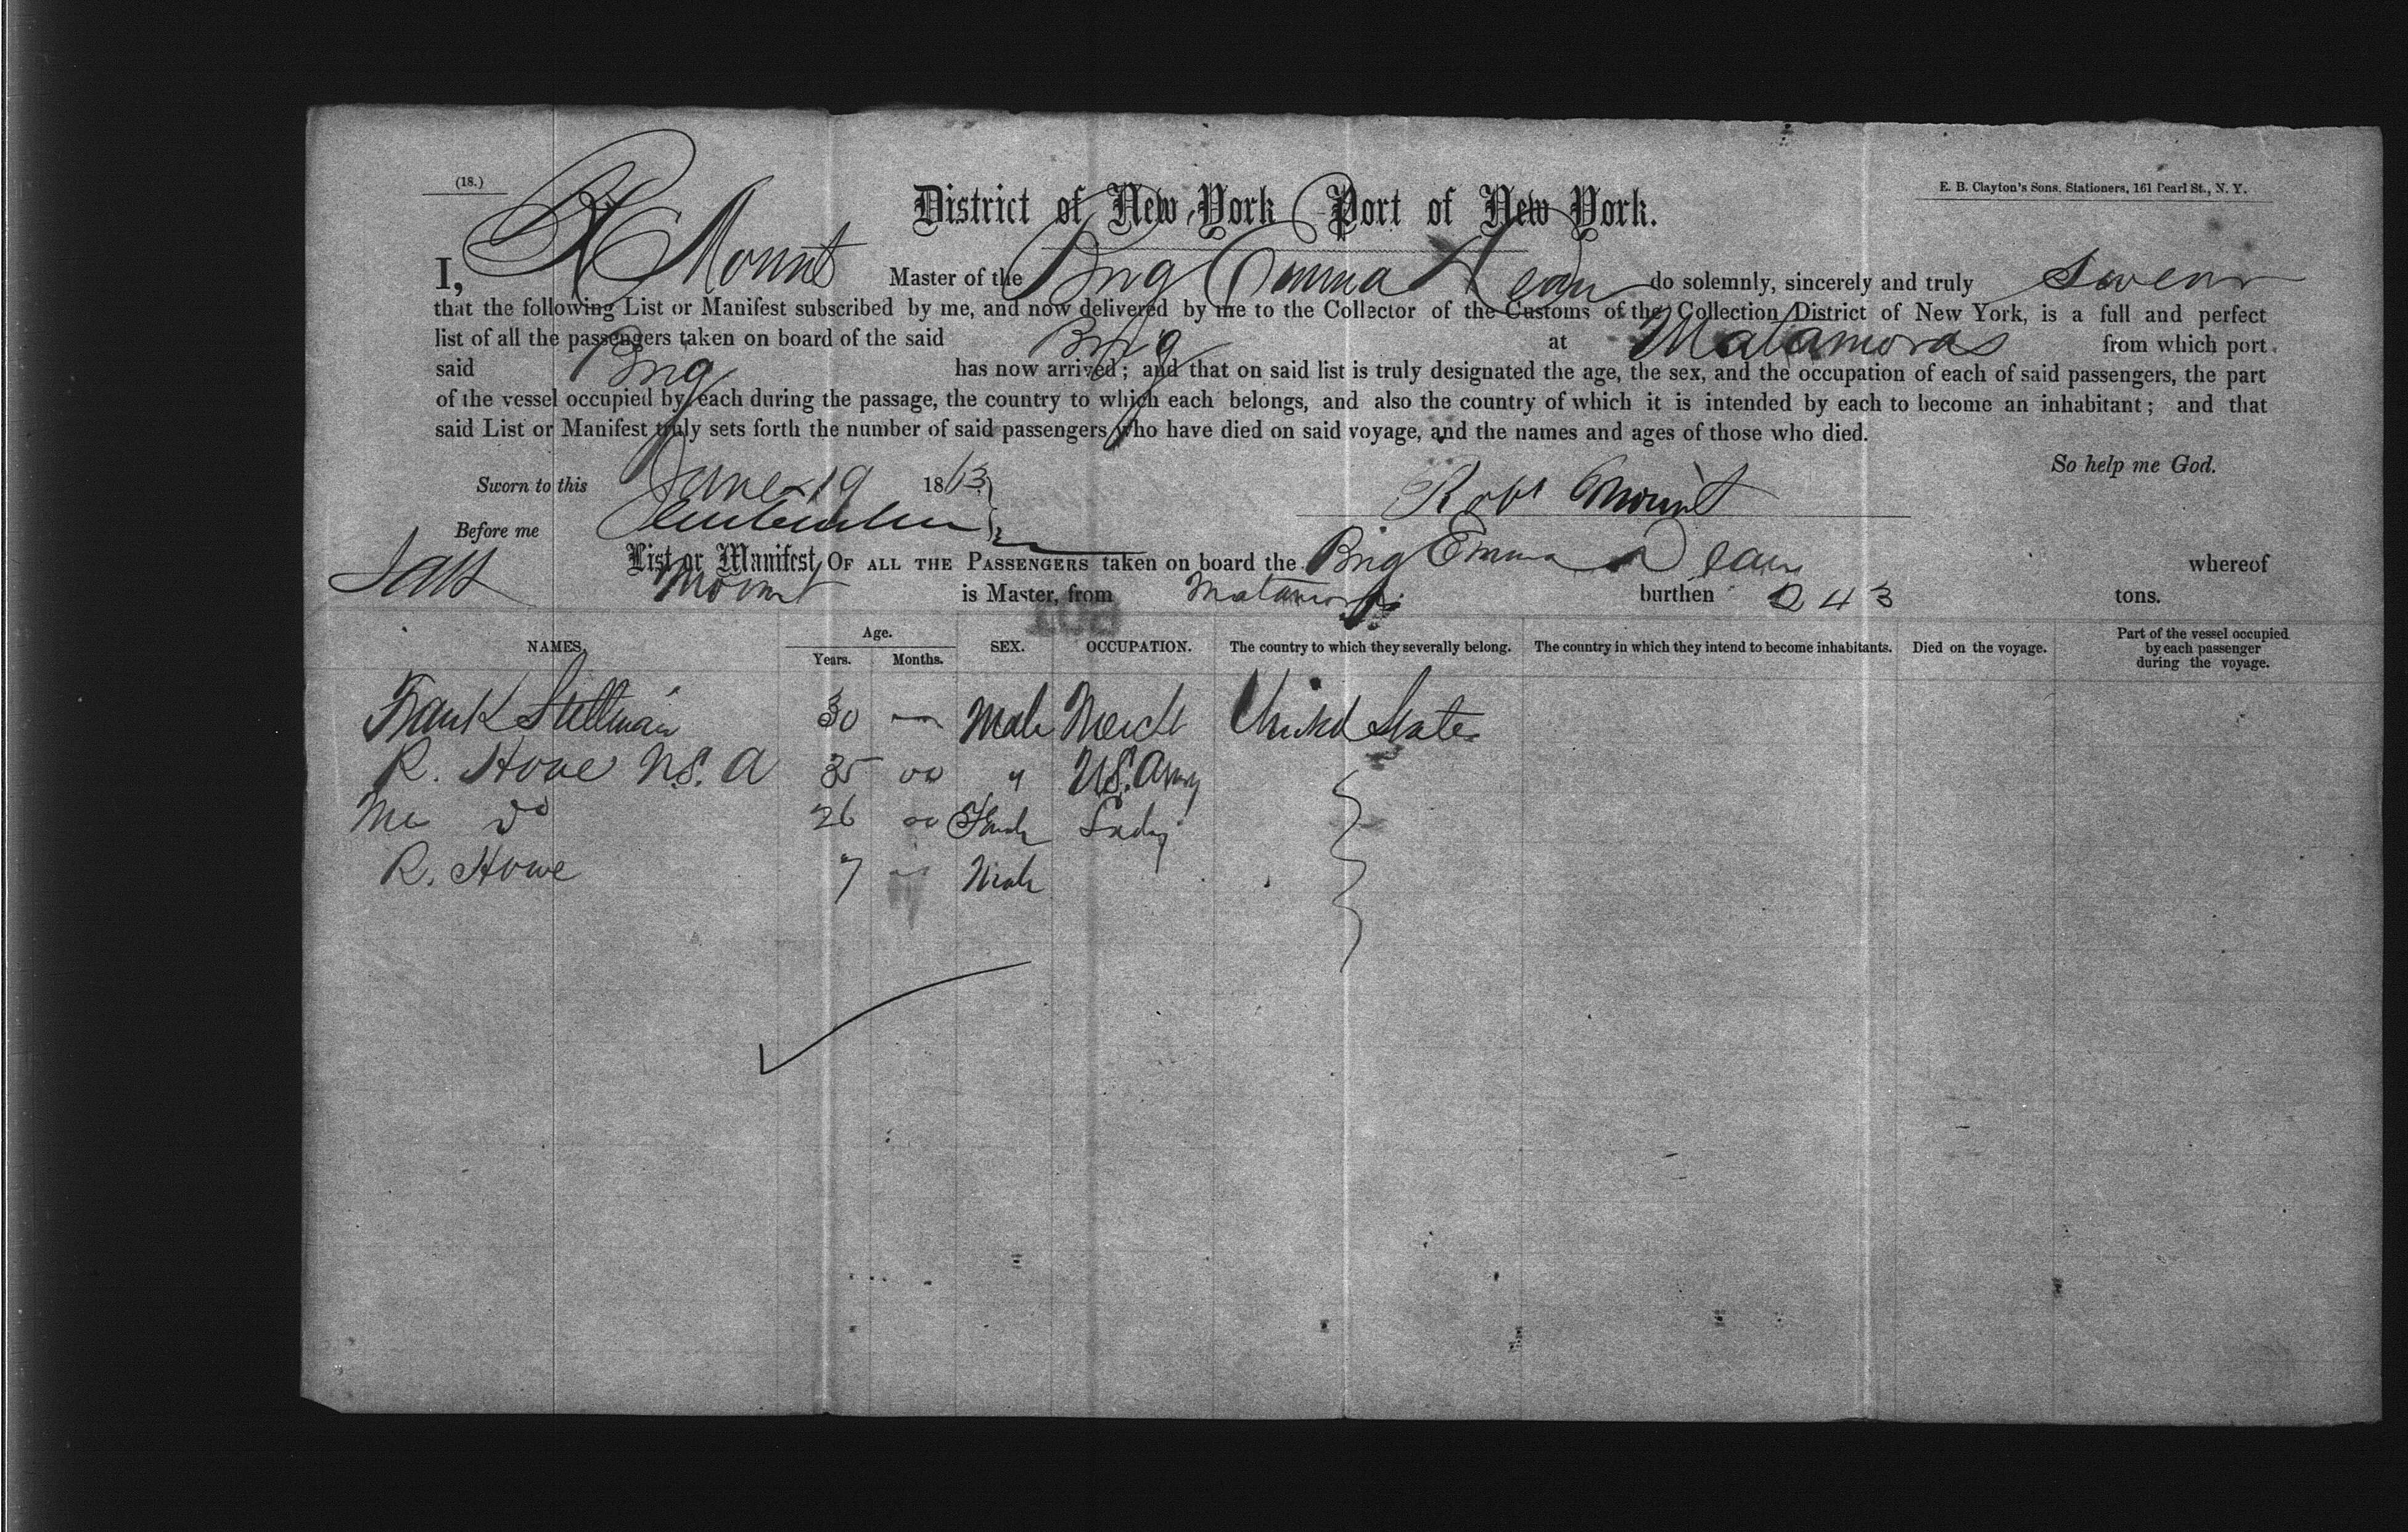 (18.)
E. B. Clayton's Sons, Stationers, 161 Pearl St., N. Y.
District of New York Port of New York.
I, R Mount Master of the Brig Emma Dean do solemnly, sincerely and truly swear
that the following List or Manifest subscribed by me, and now delivered by me to the Collector of the Customs of the Collection District of New York, is a full and perfect
list of all the passengers taken on board of the said Brig at Matamoras from which port
said Brig has now arrived; and that on said list is truly designated the age, the sex, and the occupation of each of said passengers, the part
of the vessel occupied by each during the passage, the country to which each belongs, and also the country of which it is intended by each to become an inhabitant; and that
said List or Manifest truly sets forth the number of said passengers who have died on said voyage, and the names and ages of those who died.
So help me God.
Sworn to this June 19 1863
Robt Mount
Before me
List or Manifest OF ALL THE PASSENGERS taken on board the Brig Emma Dean whereof
Mount is Master, from Matamoras burthen 243 tons.
NAMES. Age. Years. Months. SEX. OCCUPATION. The country to which they severally belong. The country in which they intend to become inhabitants. Died on the voyage. Part of the vessel occupied by each passenger during the voyage.
Frank Stillman 30 — Male Mercht United States
R. Howe U.S. A 35 " U.S. Army
do 26 Female Lady
R. Howe 7 Male